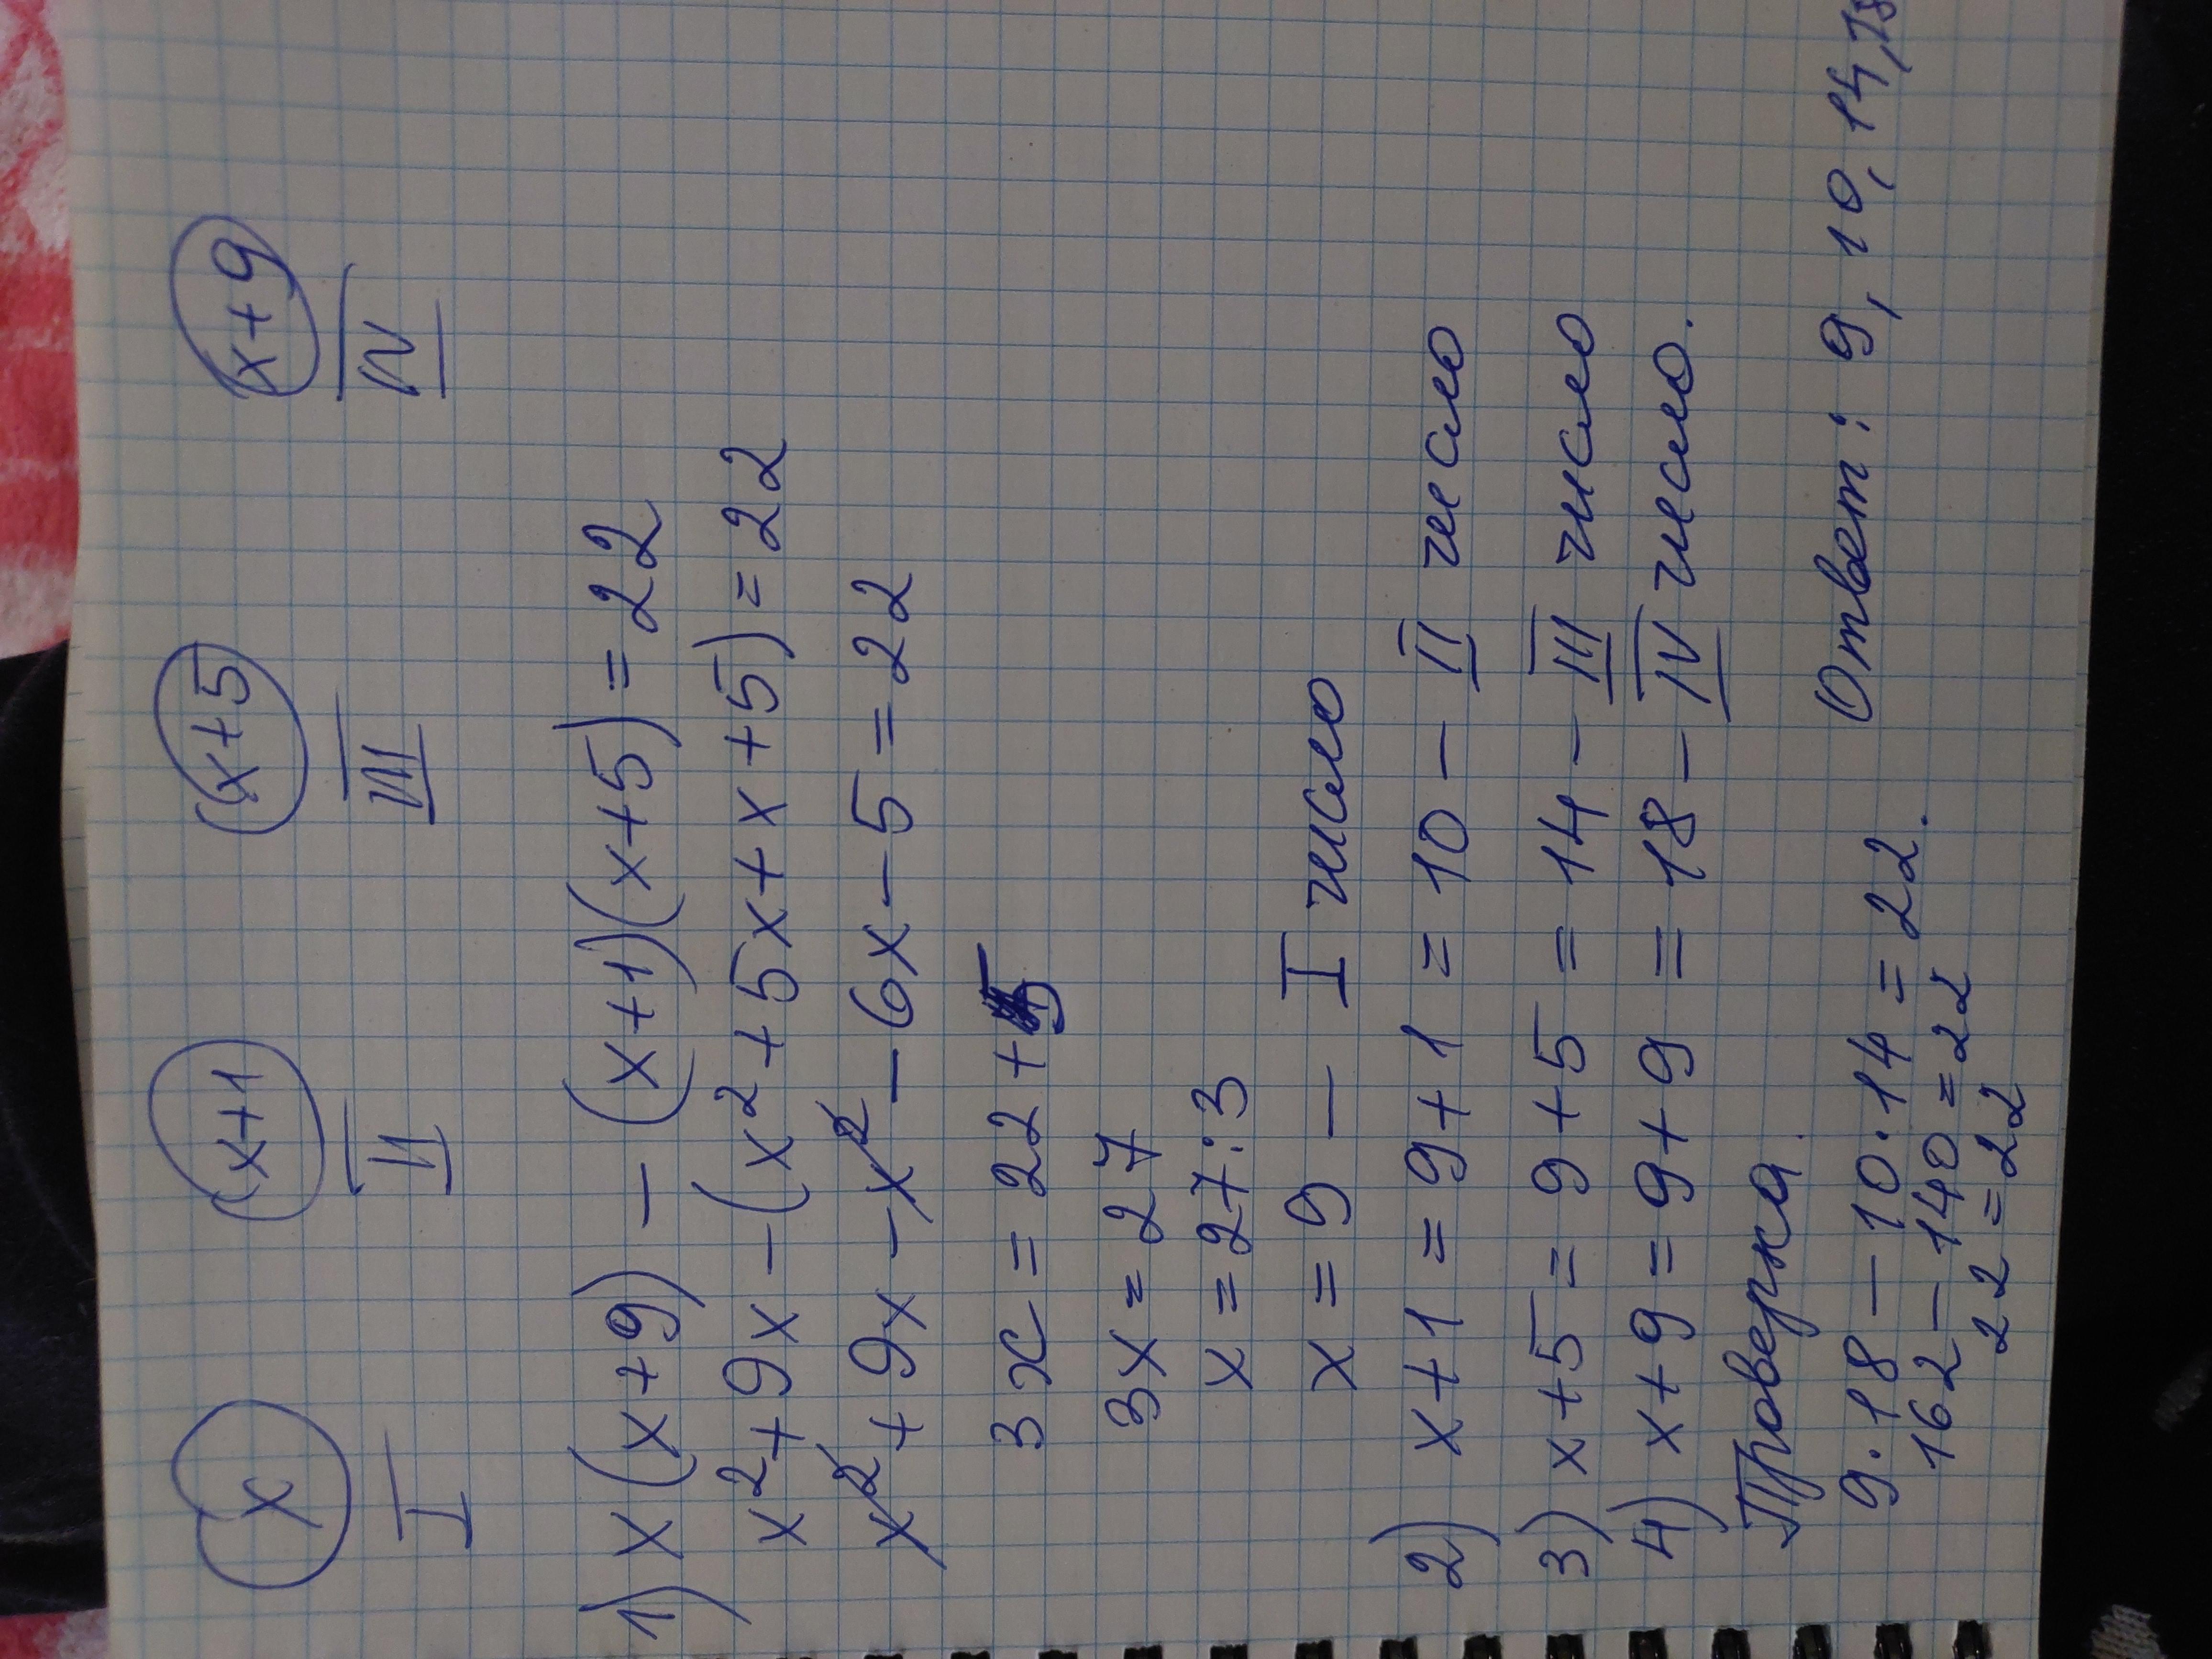 x x+1 x+5 x+9
I II III IV
1) x(x+9) - (x+1)(x+5) = 22
x²+9x-(x²+5x+x+5)=22
x²+9x-x²-6x-5=22
3x = 22+5
3x = 27
x = 27:3
x = 9 - I число
2) x+1 = 9+1 = 10 - II число
3) x+5 = 9+5 = 14 - III число
4) x+9 = 9+9 = 18 - IV число.
Проверка.
9·18 - 10·14 = 22.
162 - 140 = 22
22 = 22
Ответ: 9, 10, 14, 18